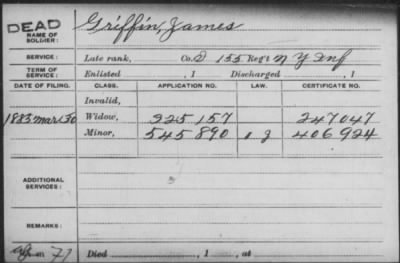 DEAD
NAME OF SOLDIER: Griffin, James
SERVICE: Late rank, Co. D 155 Reg't N Y Inf
TERM OF SERVICE: Enlisted , 1 Discharged , 1
DATE OF FILING. CLASS. APPLICATION NO. LAW. CERTIFICATE NO.
Invalid,
1883 Mar 30 Widow, 225 157 247047
Minor, 545 890 406924
ADDITIONAL SERVICES:
REMARKS:
71 Died , 1 , at